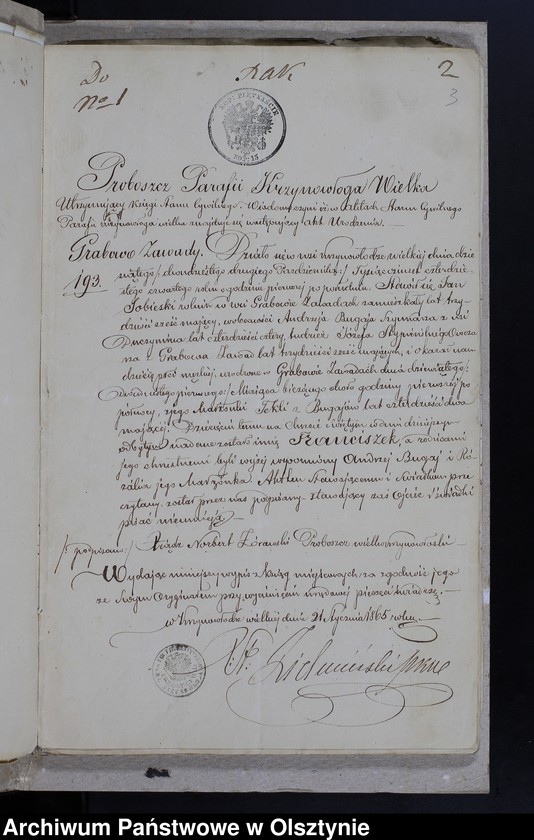 Do
No 1
Rak
2
3
KOP. PIĘTNAŚCIE
Proboszcz Parafii Krzynowłoga Wielka
Utrzymujący Księgi Stanu Cywilnego. Wiadomo czyni iż w Aktach Stanu Cywilnego
Parafii Krzynowłoga wielka znajduje się następujący akt Urodzenia.
Grabowo Zawady.
193.
Działo się w wsi Krzynowłodze wielkiej dnia dzie
wiątego / dwudziestego drugiego Października / tysiąc ośmset czterdzie
stego czwartego roku o godzinie pierwszej po południu. Stawił się Jan
Sobieski rolnik w wsi Grabowie Zawadach zamieszkały lat trzy
dzieści sześć mający, w obecności Andrzeja Bugaja Szymana z wsi
lat czterdzieści cztery, tudzież Józefa Skupińskiego Owcza
rza z Grabowa Zawad lat trzydzieści sześć mających, i okazał nam
dziecię płci męzkiej, urodzone w Grabowie Zawadach dnia dziewiątego /
dwudziestego pierwszego / Miesiąca bieżącego około godziny pierwszej po
północy, z jego Małżonki Tekli z Bugajów lat czterdzieści dwa
mającej. Dziecięciu temu na Chrzcie Świętym w dniu dzisiejszym
odbytym nadane zostało imię Franciszek, a rodzicami
jego chrzestnemi byli wyżej wspomniony Andrzej Bugaj i Ró
zalia jego Małżonka. Akt ten stawającemu i Świadkom prze
czytany, został przez nas podpisany, stawający zaś Ojciec i świadki
pisać nieumieją.
/ podpisano / Xiądz Norbert Żórawski Proboszcz wielkokrzynowłoski
Wydając niniejszy wypis z Ksiąg miejscowych, za zgodność jego
ze swym Oryginałem przy wyciśnięciu urzędowej pieczęci świadczę.
w Krzynowłodze wielkiej dnia 21 Stycznia 1865 roku.
Archiwum Państwowe w Olsztynie